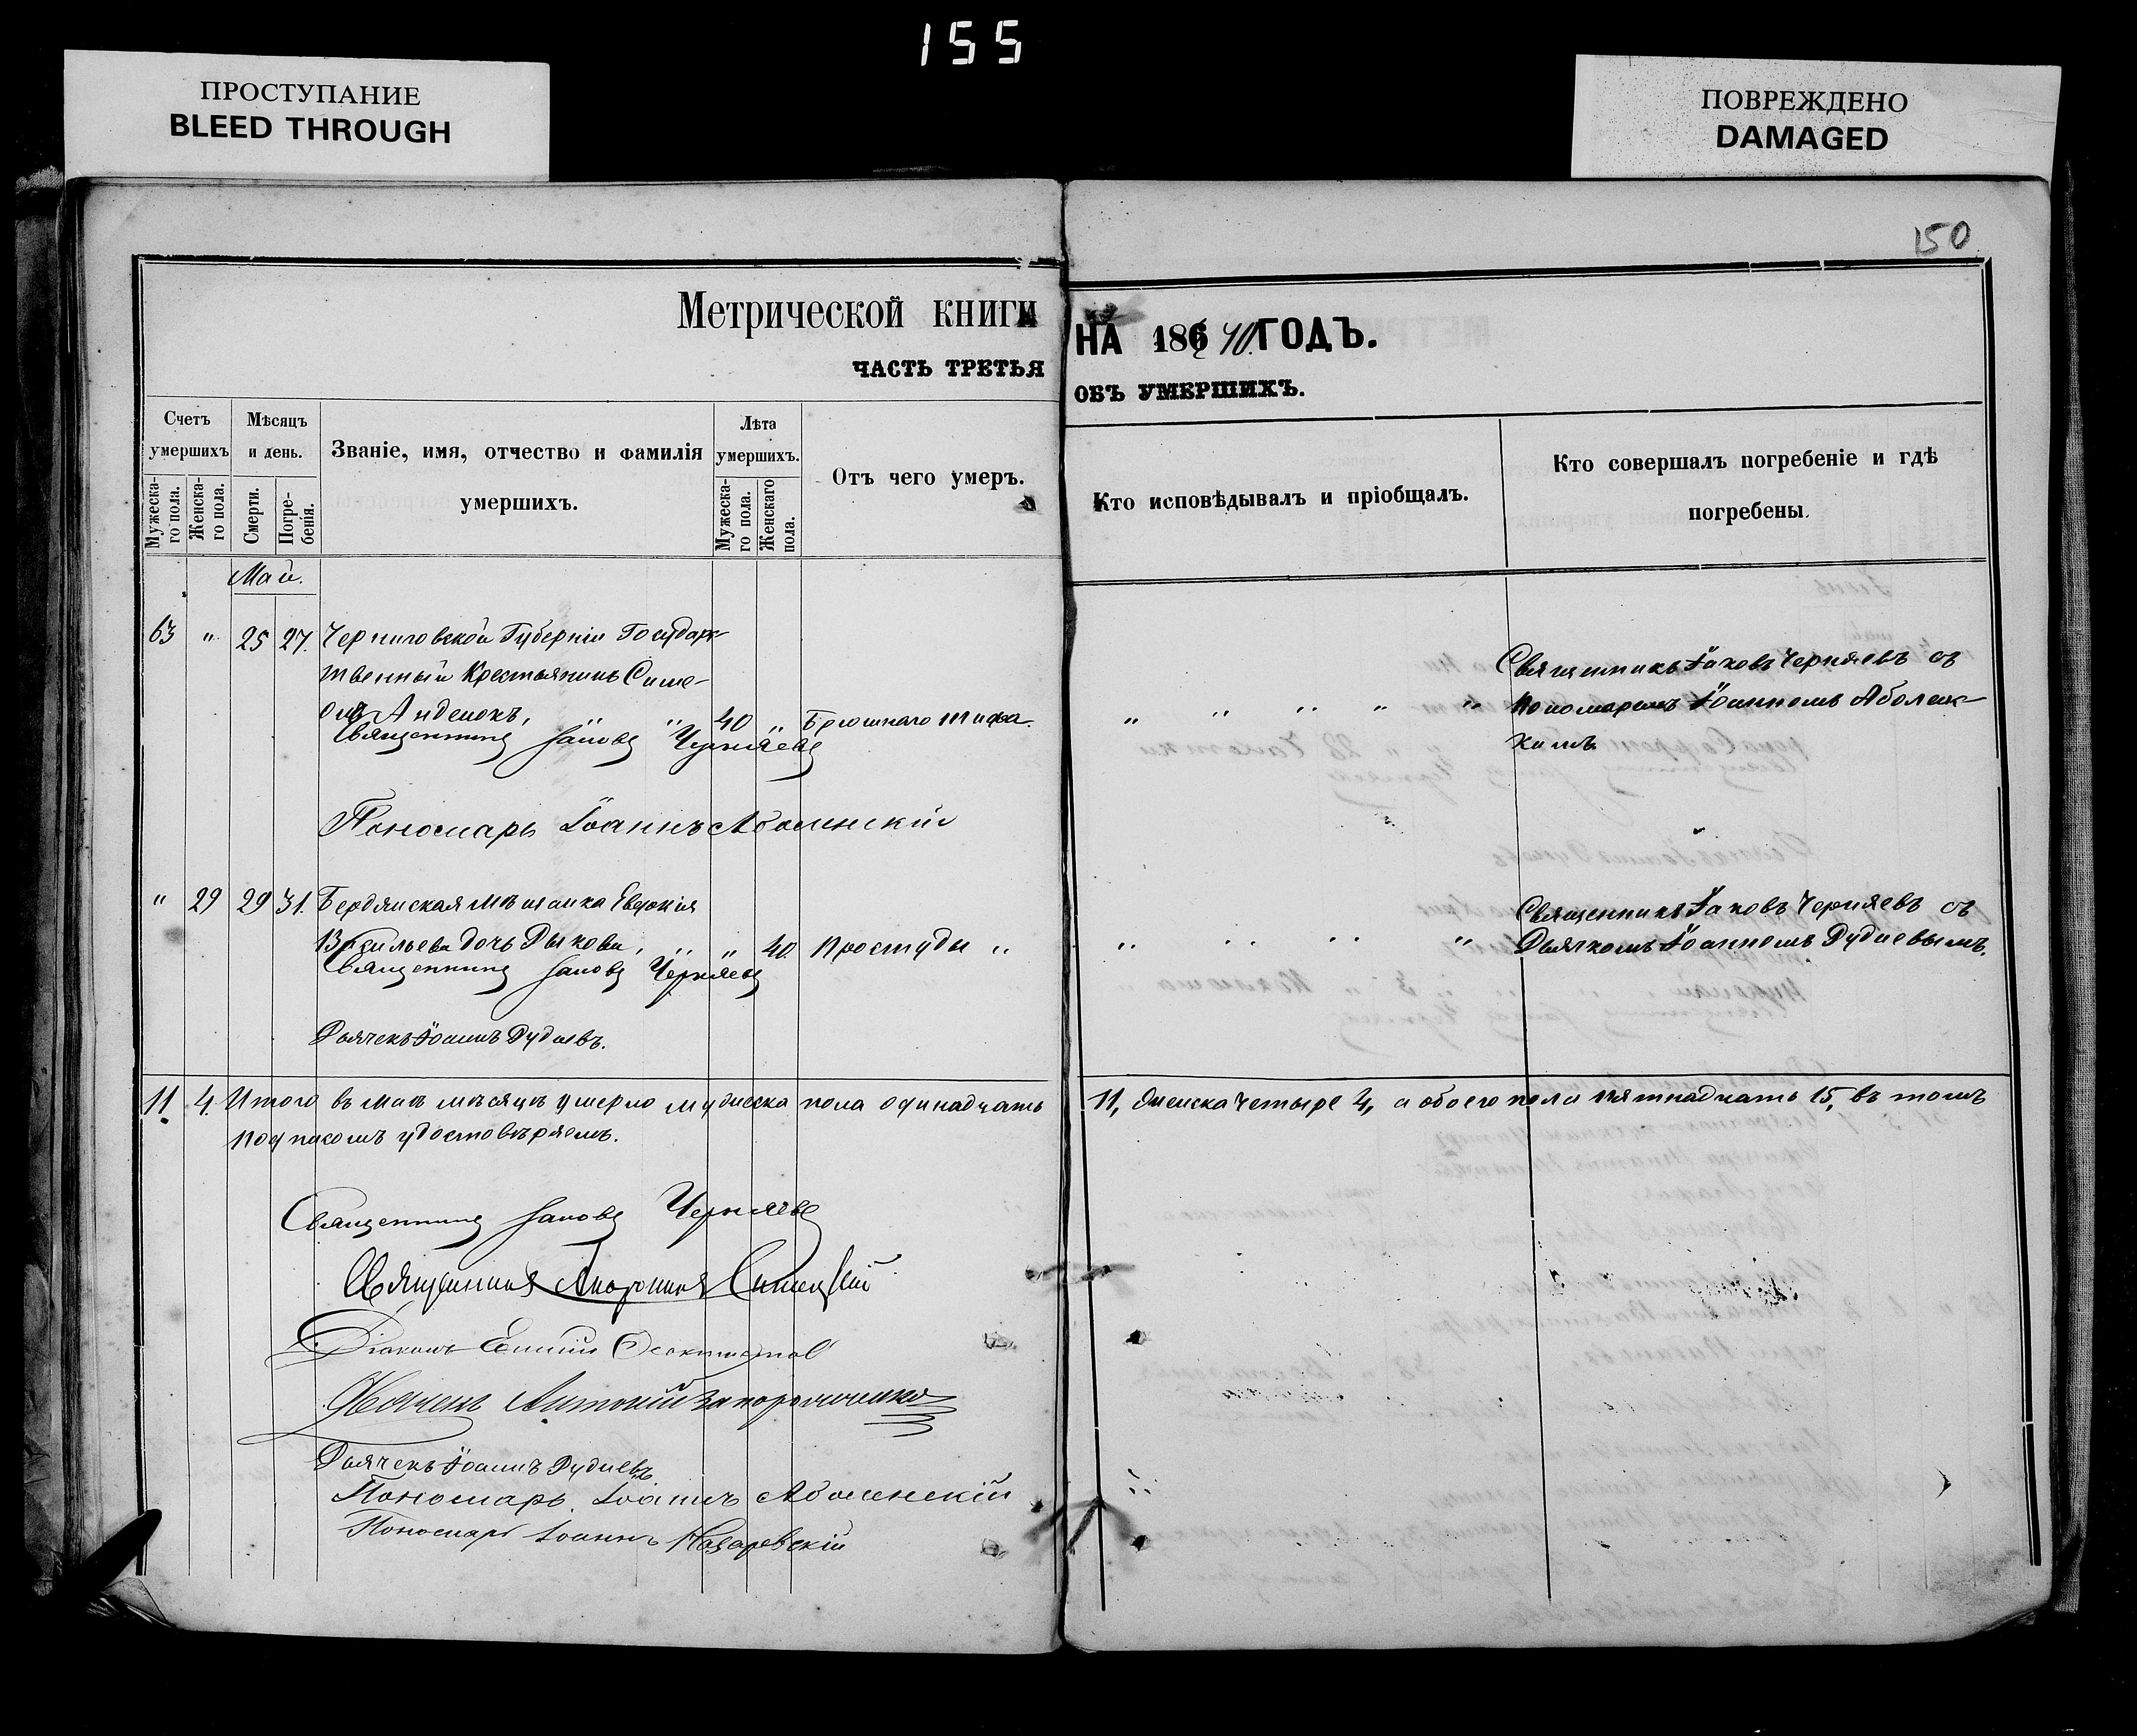 155
ПРОСТУПАНИЕ
BLEED THROUGH
ПОВРЕЖДЕНО
DAMAGED
150
Метрической книги
НА 186 70. ГОДЪ.
ЧАСТЬ ТРЕТЬЯ
ОБЪ УМЕРШИХЪ.
Счетъ умершихъ
Мужеска-го пола.
Женска-го пола.
Мѣсяцъ и день.
Смерти.
Погре-бенія.
Званіе, имя, отчество и фамилія умершихъ.
Лѣта умершихъ.
Мужеска-го пола.
Женскаго пола.
Отъ чего умеръ.
Кто исповѣдывалъ и пріобщалъ.
Кто совершалъ погребеніе и гдѣ погребены.
Май.
63 " 25 27. Черниговской Губерніи Государс-
твенный Крестьянинъ Симе-
онъ " " 40 " Брюшнаго тифа.
Священникъ Іаковъ Черняевъ
Пономарь Іоаннъ Аболенскій
Священникъ Іаковъ Черняевъ съ
Пономаремъ Іоанномъ Аболенс-
кимъ
" 29 29 31. Бердянская мѣщанка Евдокія
Васильева дочь Рыкова, " " 40 Простуды "
Священникъ Іаковъ Черняевъ
Дьячекъ Іоаннъ Рудневъ.
Священникъ Іаковъ Черняевъ съ
Дьячкомъ Іоанномъ Рудневымъ.
11. 4. Итого въ маѣ мѣсяцѣ умерло мужеска пола одинадцать
11, женска четыре 4, а обоего пола пятнадцать 15, въ томъ
подписомъ удостовѣряемъ.
Священникъ Іаковъ Черняевъ
Священникъ
Діаконъ
Дьячекъ Антоній
Дьячекъ Іоаннъ Рудневъ
Пономарь Іоаннъ Аболенскій
Пономарь Іоаннъ Назаревскій